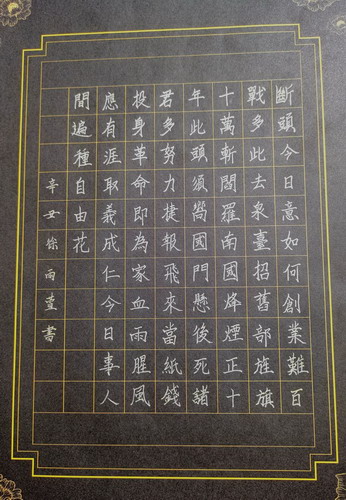 斷頭今日意如何創業難百
戰多此去泉臺招舊部旌旗
十萬斬閻羅南國烽煙正十
年此頭須國門懸後死諸
君多努力捷報飛來當紙錢
投身革命即為家血雨腥風
應有涯取義成仁今日事人
間遍種自由花
辛丑徐雨書